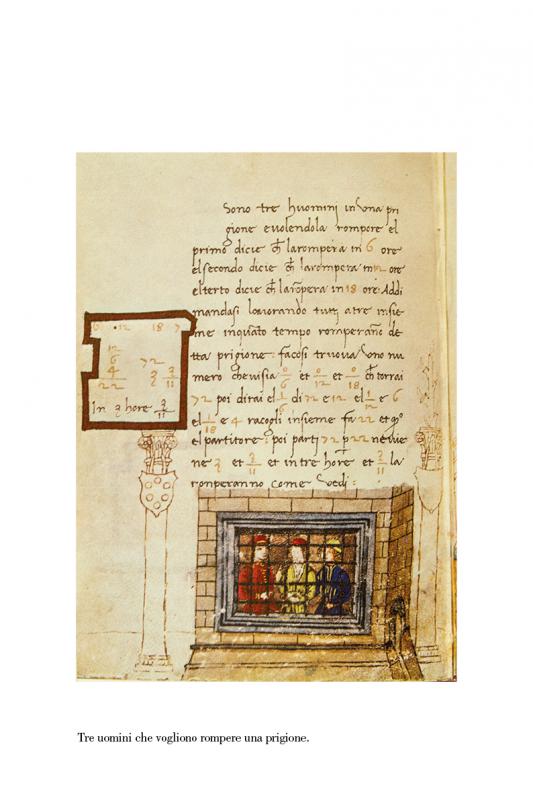 Sono tre huomini in una pri
gione e volendola rompere el
primo dicie ch̄ la romperà in 6 ore
el secondo dicie ch̄ la romperà in 12 ore
el terto dicie ch̄ la rōpera in 18 ore. Addi
mandasi lavorando tutti a tre insie
me in quāto tempo romperanō de
tta prigione: facosi truova uno nu
mero che visia 0/6 et 0/12 et 0/18 ch̄ torrai
72 poi dirai el 1/6 di 72 e 12 el 1/12 e 6
el 1/18 e 4 racogli insieme fa 22 et q̄o
el partitore: poi parti 72 p 22 ne vie
ne 3 et 3/11 et in tre hore et 3/11 la
romperanno come vedi:
6 . 12 18 7
12
6
4
22
72
3 3/11
In 3 hore 3/11
Tre uomini che vogliono rompere una prigione.